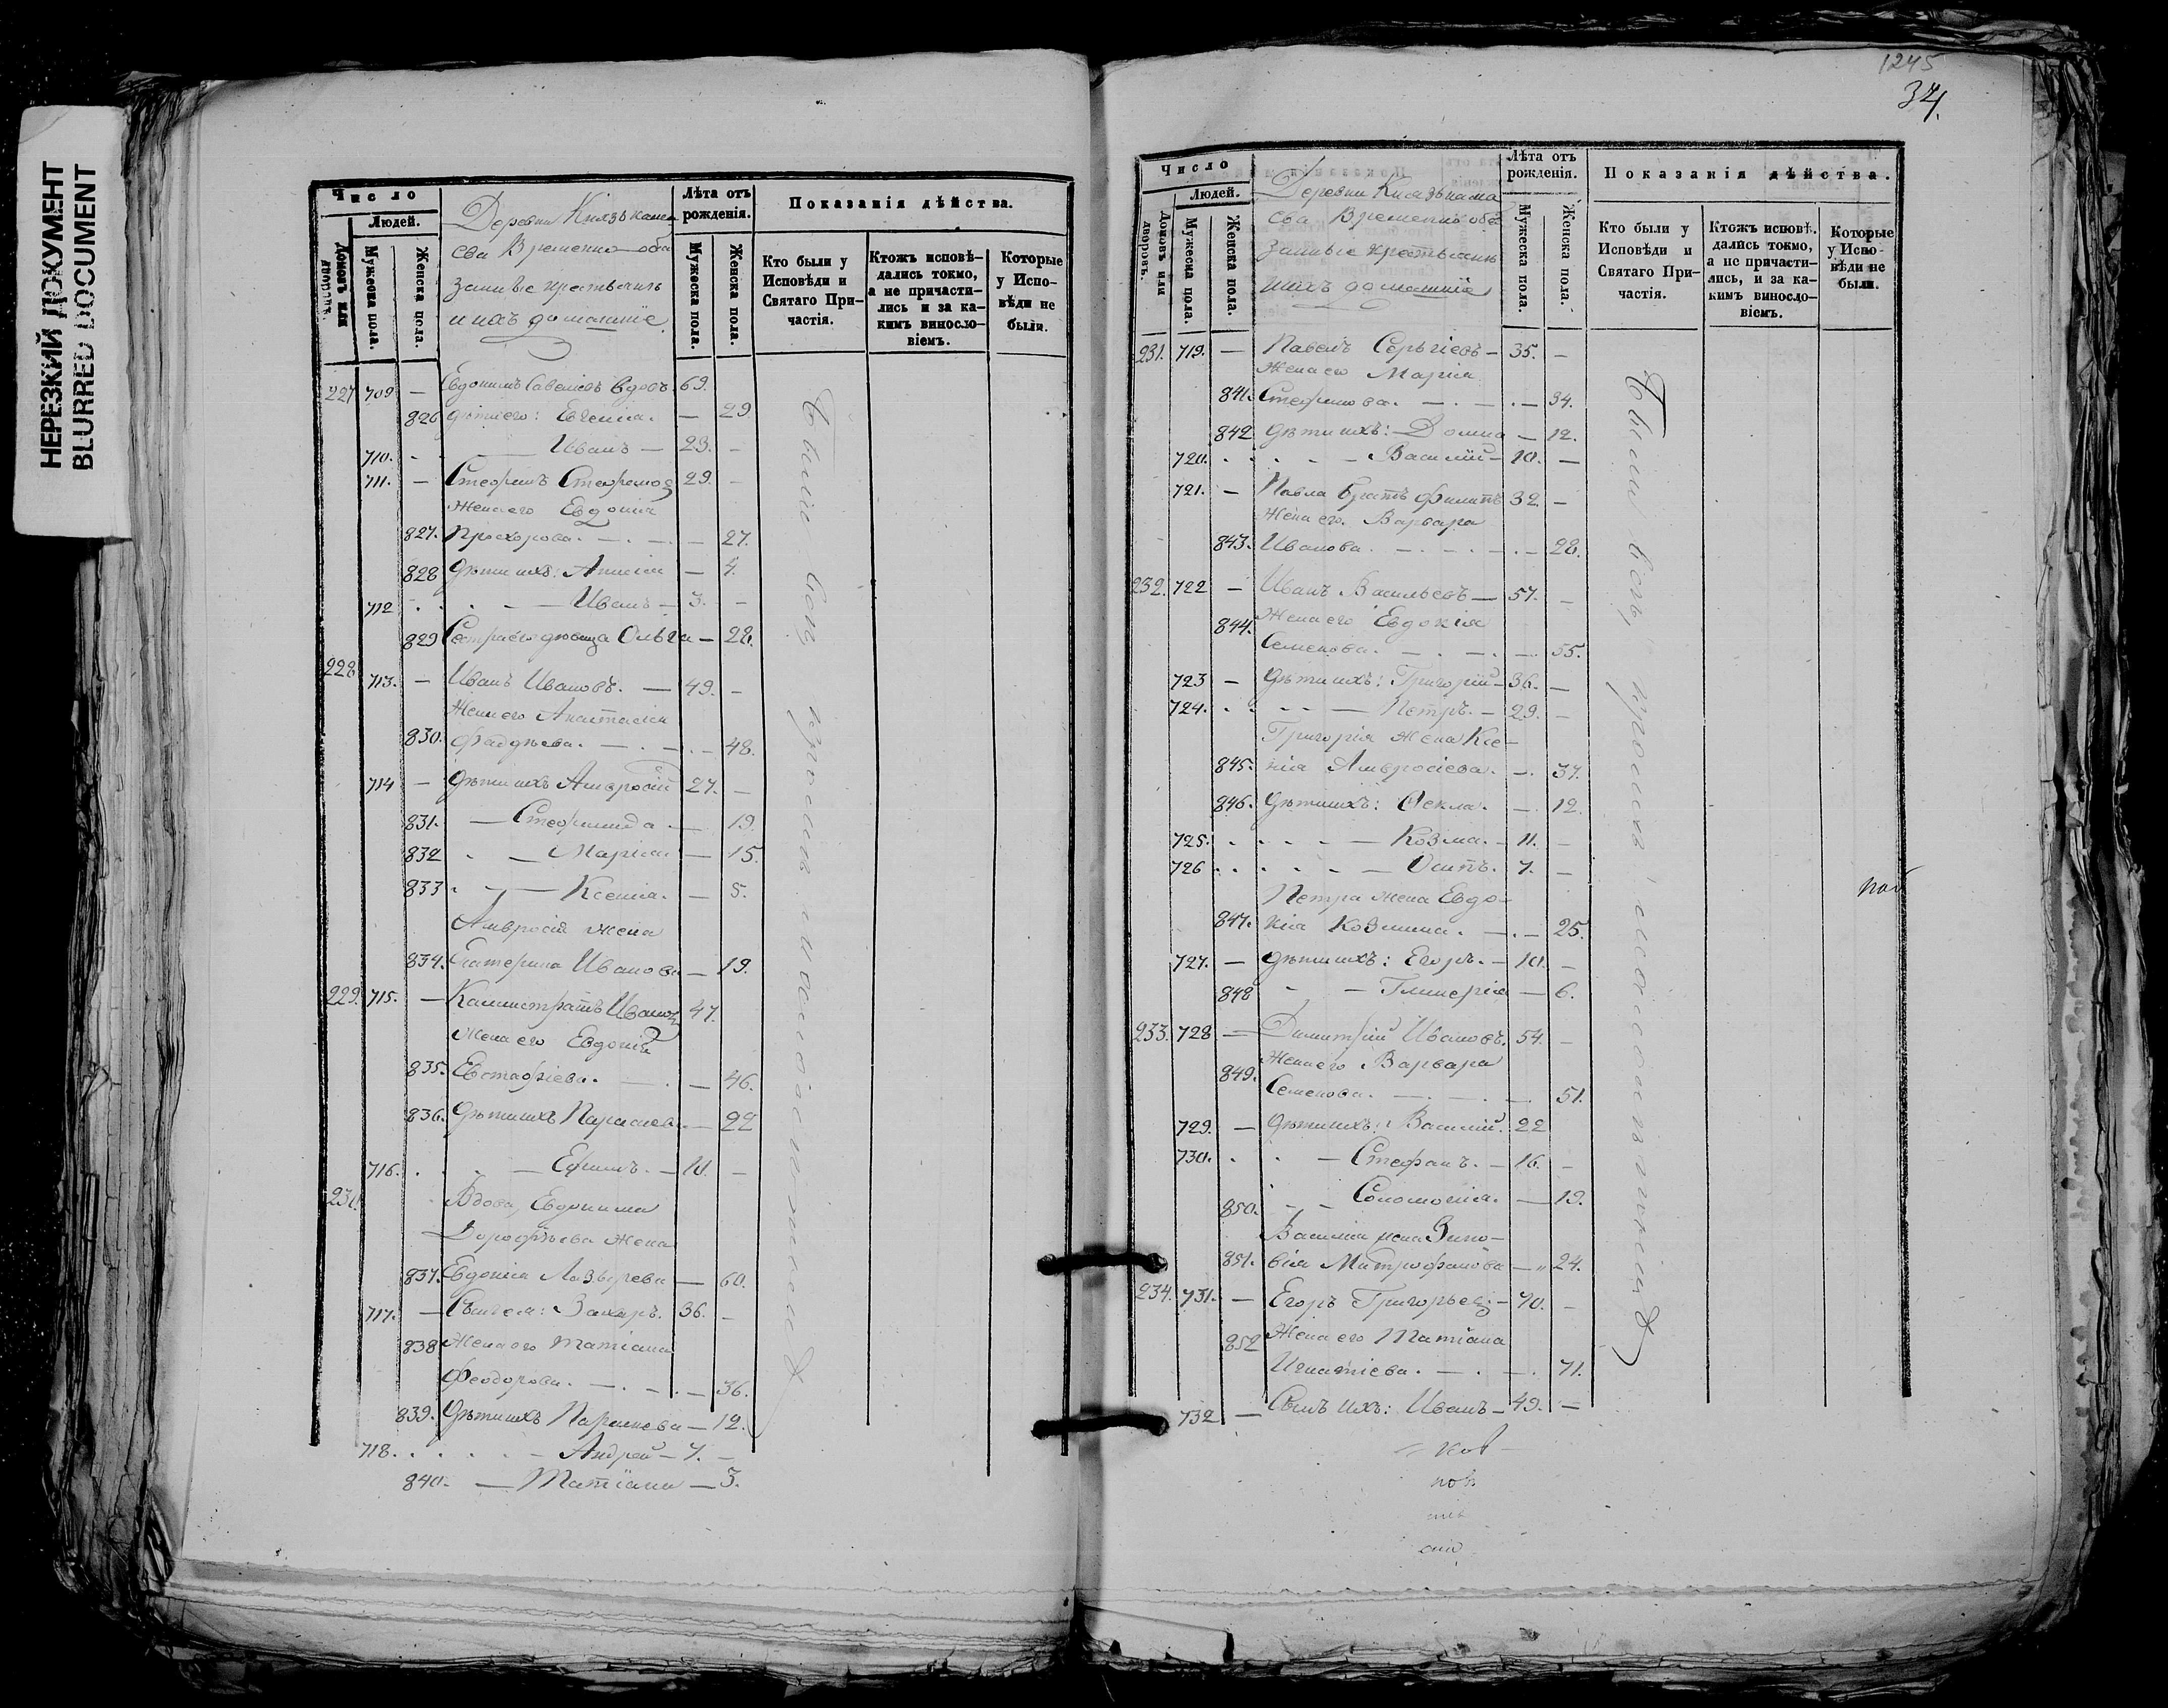 НЕРЕЗКИЙ ДОКУМЕНТ
BLURRED DOCUMENT
Число
Людей.
Домовъ или дворовъ.
Мужеска пола.
Женска пола.
Деревни Князькама
сва Временно-обя
занные крестьяни
и ихъ домашніе
Лѣта отъ
рожденія.
Мужеска пола.
Женска пола.
Показанія дѣйства.
Кто были у
Исповѣди и
Святаго При-
частія.
Ктожъ исповѣ-
дались токмо,
а не причасти-
лись и за ка-
кимъ виносло-
віемъ.
Которые
у Испо-
вѣди не
были.
227 709 — Евдокимъ Савеліевъ вдовъ 69.
826 дѣти его: Евгенія. — 29
710. Иванъ — 23. —
711. — Стефанъ Стефанов 29. —
Жена его Евдокія
827. Прохорова. — 27.
828 Дѣти ихъ: Агнесія — 4.
712 Иванъ — 3. —
829 Сестра его дѣвица Ольга — 22.
228 713. — Иванъ Ивановъ. — 49. —
Жена его Анастасія
830. Фадѣева. — 48.
714 — Дѣти ихъ Амвросій 27. —
831. — Стефанида — 19.
832 — Марія — 15.
833 — Ксенія. — 5.
Амвросія жена
834. Екатерина Иванова — 19.
229. 715. — Каллистратъ Иванов 47.
Жена его Евдокія
835. Евстафіева. — 46.
836. Дѣти ихъ Параскева — 22
716. — Ефимъ. — 10. —
230. Вдова, Евдокима
Дорофѣева жена
837. Евдокія Лазарева — 60.
717. — Сынъ ея: Захаръ. 36. —
838 Жена его Татіана
Феодорова. — 36.
839. Дѣти ихъ Параскева — 12.
718. — Андрей — 7. —
840. — Татіана — 3.
1245
34.
Число
Людей.
Домовъ или дворовъ.
Мужеска пола.
Женска пола.
Деревни Князькама
сва Временно обя
занные крестьяни
и ихъ домашніе
Лѣта отъ
рожденія.
Мужеска пола.
Женска пола.
Показанія дѣйства.
Кто были у
Исповѣди и
Святаго При-
частія.
Ктожъ исповѣ-
дались токмо,
а не причасти-
лись, и за ка-
кимъ виносло-
віемъ.
Которые
у Испо-
вѣди не
были.
231. 719. — Павелъ Сергіевъ — 35. —
Жена его Марія
841. Стефанова. — 34.
842 Дѣти ихъ: Домна — 12.
720. — Василій — 10. —
721. — Павла братъ Филипъ 32. —
Жена его Варвара
843. Иванова. — 28.
232. 722 — Иванъ Васильевъ — 57. —
844. Жена его Евдокія
Семенова. — 55.
723 — Дѣти ихъ: Григорій — 36. —
724. — Петръ. — 29. —
Григорія жена Ксе-
845. нія Амвросіева. — 37.
846. Дѣти ихъ: Ѳекла. — 12.
725. — Козма. — 11. —
726 — Осипъ. 7. —
Петра жена Евдо-
847. кія Козмина. — 25.
727. — Дѣти ихъ: Егоръ. — 10. —
848 — Гликерія — 6.
233. 728 — Димитрій Ивановъ. 54. —
849. Жена его Варвара
Семенова. — 51.
729. — Дѣти ихъ: Василій. 22
730. — Стефанъ. — 16. —
850. Соломонія. — 19.
Василія жена Зино-
851. вія Митрофанова — 24.
234. 731. — Егоръ Григорьев — 70. —
852 Жена его Татіана
Игнатіева. — 71.
732 — Сынъ ихъ: Иванъ — 49. —